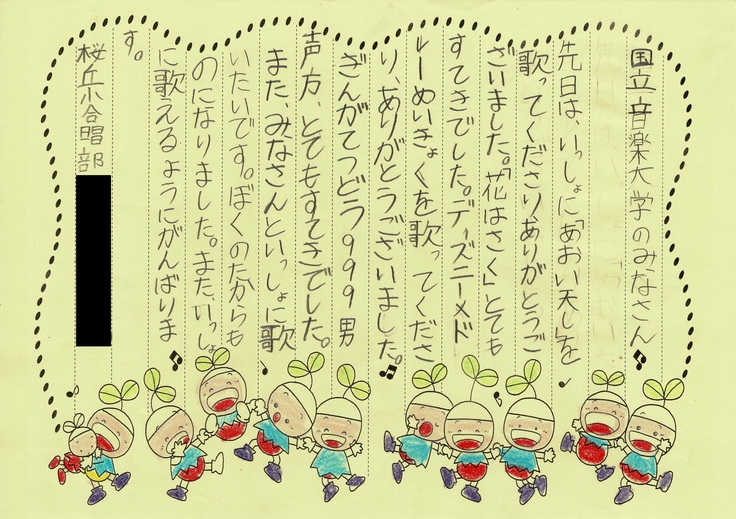 国立音楽大学のみなさん
先日は、いっしょに「あおい天し」を
歌ってくださり、ありがとうご
ざいました。「花はさく」とても
すてきでした。ディズニーメド
レーめいきょくを歌ってくださ
り、ありがとうございました。
ぎんがてつどう999男
声方、とてもすてきでした。
また、みなさんといっしょに歌
いたいです。ぼくのたからも
のになりました。また、いっしょ
に歌えるようにがんばりま
す。
桜丘小合唱部